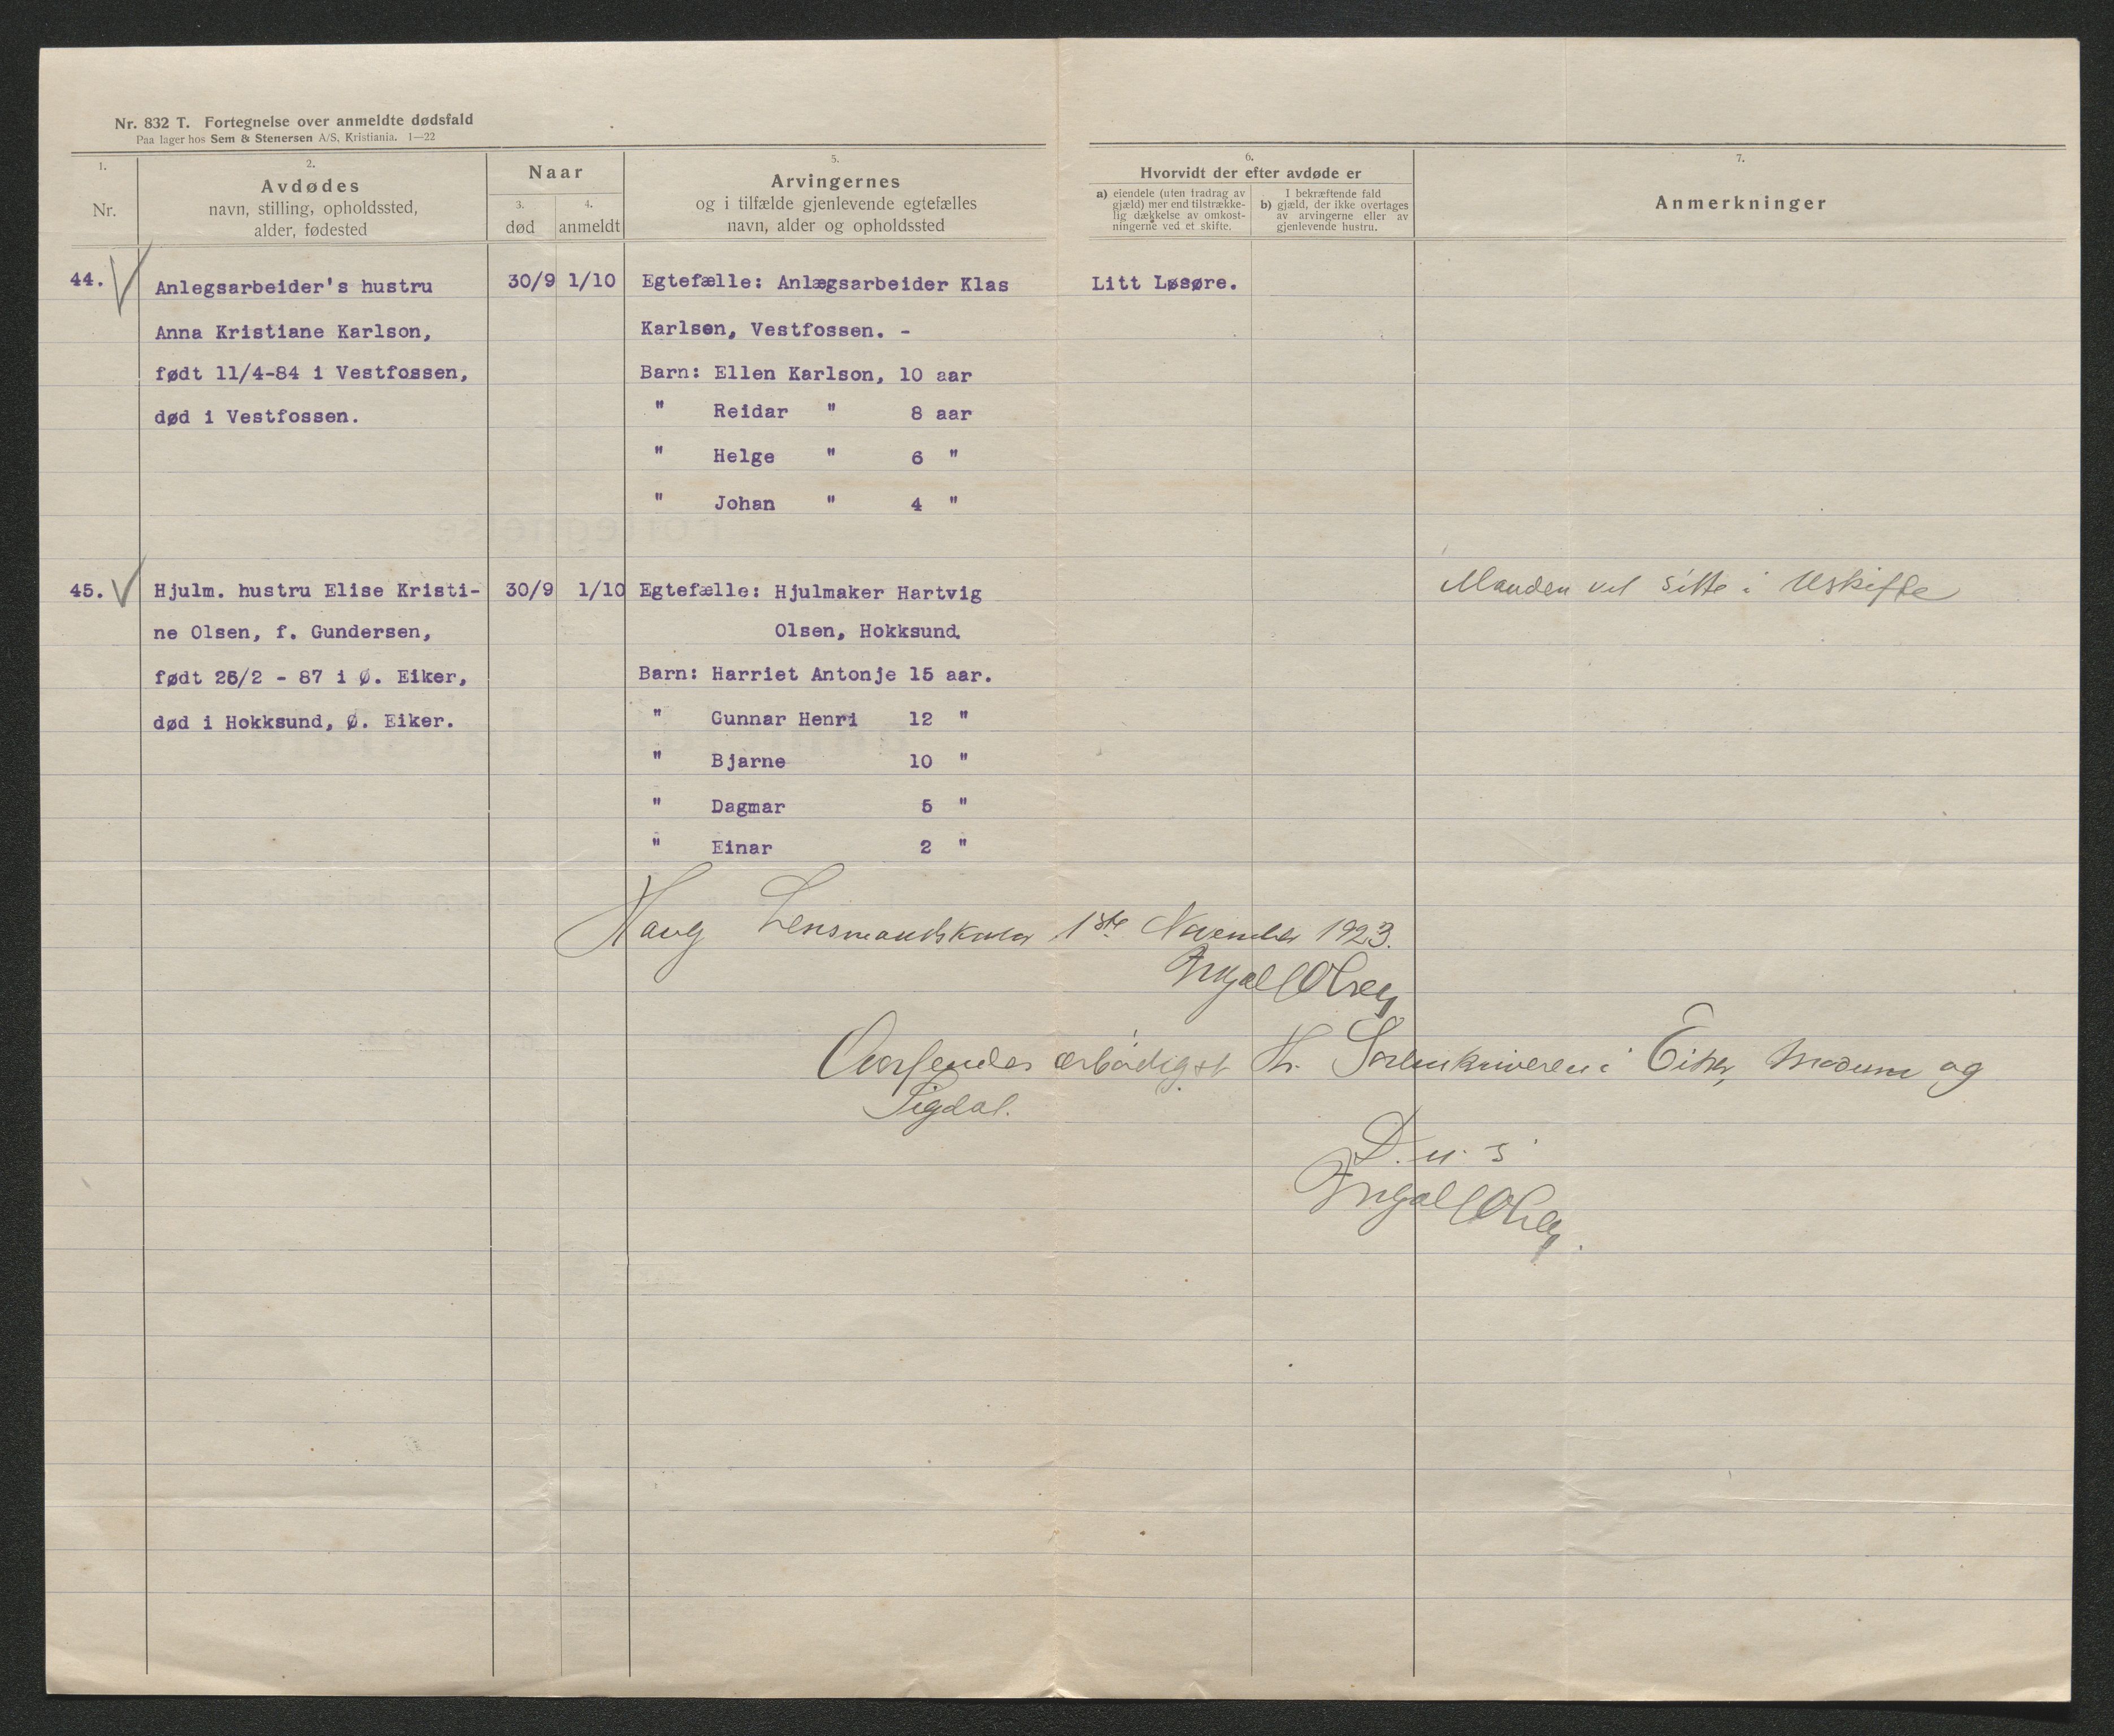 Nr. 832 T. Fortegnelse over anmeldte dødsfald
Paa lager hos Sem & Stenersen A/S, Kristiania. 1—22
1.
Nr.
2.
Avdødes
navn, stilling, opholdssted,
alder, fødested
Naar
3.
død
4.
anmeldt
5.
Arvingernes
og i tilfælde gjenlevende egtefælles
navn, alder og opholdssted
6.
Hvorvidt der efter avdøde er
a) eiendele (uten fradrag av
gjæld) mer end tilstrække-
lig dækkelse av omkost-
ningerne ved et skifte.
I bekræftende fald
b) gjæld, der ikke overtages
av arvingerne eller av
gjenlevende hustru.
7.
Anmerkninger
44.
Anlegsarbeider's hustru
Anna Kristiane Karlson,
født 11/4-84 i Vestfossen,
død i Vestfossen.
30/9 1/10
Egtefælle: Anlægsarbeider Klas
Karlsen, Vestfossen. -
Barn: Ellen Karlson, 10 aar
" Reidar " 8 aar
" Helge " 6 "
" Johan " 4 "
Litt Løsøre.
45.
Hjulm. hustru Elise Kristi-
ne Olsen, f. Gundersen,
født 26/2 - 87 i Ø. Eiker,
død i Hokksund, Ø. Eiker.
30/9 1/10
Egtefælle: Hjulmaker Hartvig
Olsen, Hokksund.
Barn: Harriet Antonje 15 aar.
" Gunnar Henri 12 "
" Bjarne 10 "
" Dagmar 5 "
" Einar 2 "
Manden vil sitte i Uskifte
Haug Lensmandskontor 1ste November 1923.
Olsen
Oversendes ærbødigst Hr. Sorenskriveren i Eiker, Modum og
Sigdal.
D. u. s
Olsen.